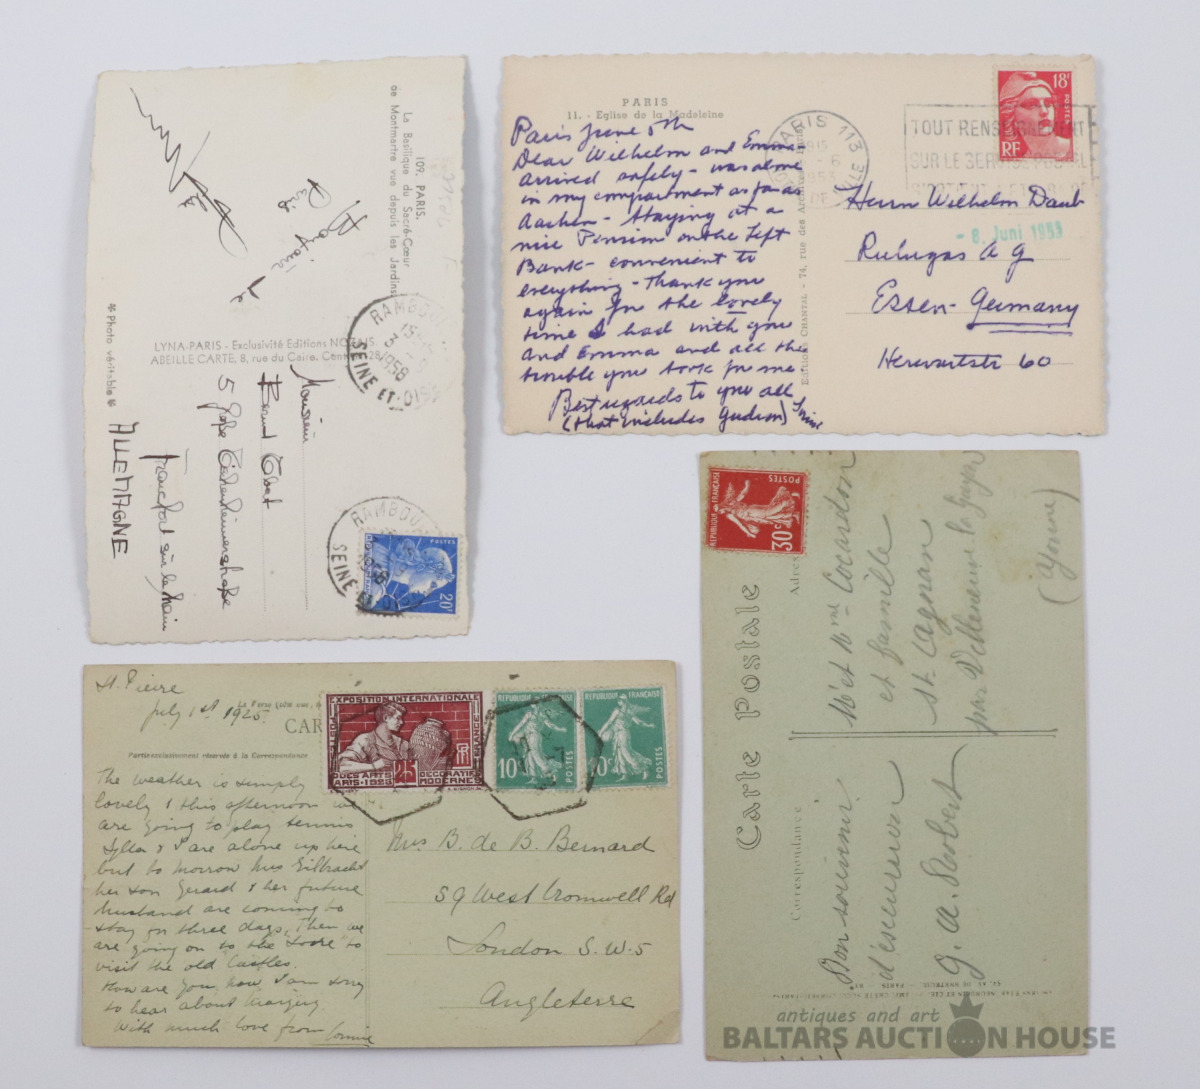 109. PARIS.
La Basilique du Sacré-Cœur
de Montmartre vue depuis les Jardins
Paris
LYNA-PARIS - Exclusivité Editions
ABEILLE CARTE, 8, rue du Caire.
Photo véritable
RAMBOU
15
3
1958
SEINE ET OISE
Monsieur
5
Francfort sur le Main
ALLEMAGNE
RAMBOU
SEINE
POSTES
20F
PARIS
11. - Eglise de la Madeleine
Paris June 5th
Dear Wilhelm and Emma-
arrived safely - was alone
in my compartment as far as
Aachen - Staying at a
nice Pension on the Left
Bank - convenient to
everything - Thank you
again for the lovely
time I had with you
and Emma and all the
trouble you took for me
Best regards to you all
(that includes Gudrun)
Editions CHANTAL - 74, rue des Archives
PARIS 113
1953
TOUT RENSEIGNEMENT
SUR LE SERVICE POSTAL
18F
POSTES
RF
Herrn Wilhelm Daub
- 8. Juni 1953
Ruhrgas A G
Essen - Germany
Herwartstr 60
St. Pierre
July 1st 1925
CAR
Partie exclusivement réservée à la Correspondance
The weather is simply
lovely & this afternoon we
are going to play tennis
& I are alone up here
but to morrow Mrs
her son Gerard & her future
husband are coming to
stay for three days, Then we
are going on to the Loire to
visit the old Castles.
How are you now, I am sorry
to hear about
With much love from
EXPOSITION INTERNATIONALE
POSTES
FRANCE
RF
DES ARTS
25
DECORATIFS
PARIS-1925
MODERNES
REPUBLIQUE FRANÇAISE
10c
POSTES
REPUBLIQUE FRANÇAISE
10c
POSTES
Mrs B. de B. Bernard
59 West Cromwell Rd
London S.W.5
Angleterre
REPUBLIQUE FRANÇAISE
POSTES
30c
Carte Postale
Adres
Mr et Mme Cocardon
et famille
St. Agnan
par Villeneuve la Guyar
(Yonne)
Correspondance
Bon souvenir
d'excursion
Robert
antiques and art
BALTARS AUCTION HOUSE